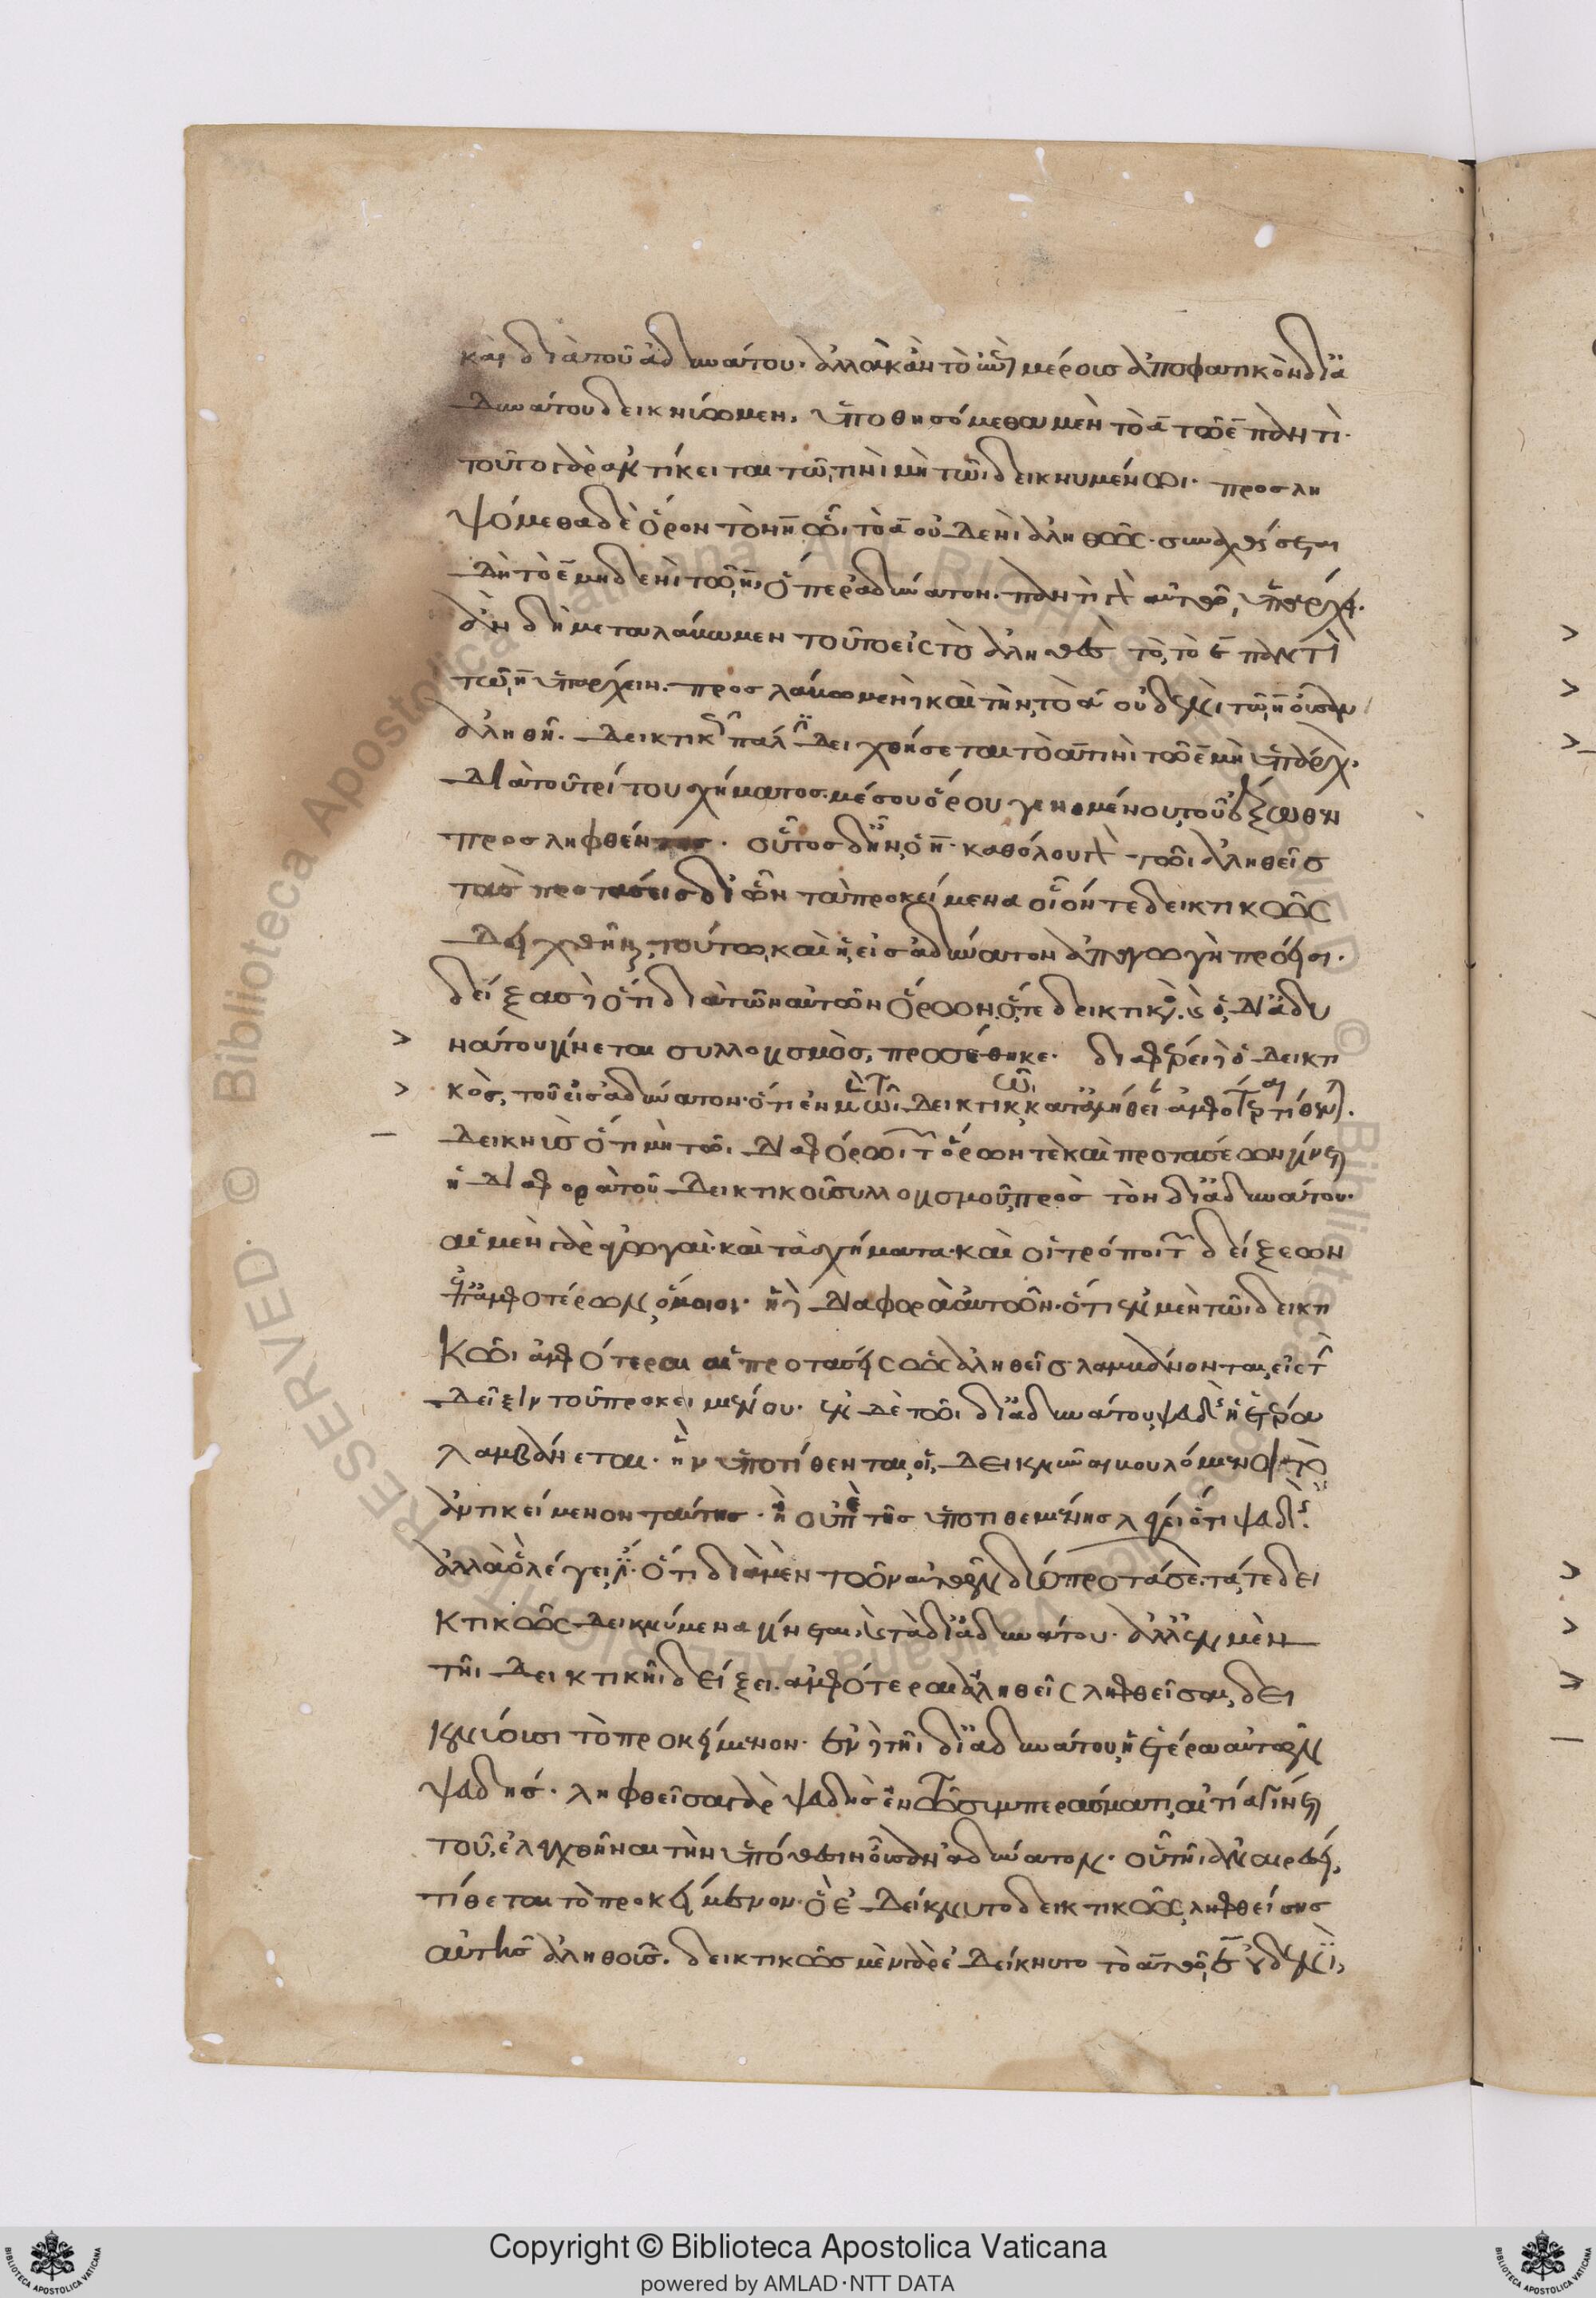 καὶ διὰ τοῦ ἀδυνάτου· ἀλλὰ κἂν τὸ ἐπὶ μέρους ἀποφατικὸν δι' ἀ
δυνάτου δεικνύωμεν, ὑποθησόμεθα μὲν τὸ α τῶ ε παντί·
τοῦτο γὰρ ἀντίκειται τῶ τινὶ μὴ τῶι δεικνυμένωι· προσλη
ψόμεθα δὲ ὅρον τὸν η ὧι τὸ α οὐδενὶ ἀληθῶς· συναχθήσεται
δὴ τὸ ε μηδενὶ τῶ η, ὅπερ ἀδύνατον· παντὶ γὰρ αὐτῶ ὑπάρχει·
ἂν δὴ μεταλάβωμεν τοῦτο εἰς τὸ ἀληθὲς τὸ, τὸ ε παντὶ
τῶ η ὑπάρχειν· προσλάβωμεν δὲ καὶ τὴν, τὸ α οὐδενὶ τῶ η οὖσαν
ἀληθῆ· δεικτικῶς πάλιν δειχθήσεται τὸ α τινὶ τῶ ε μὴ ὑπάρχειν·
διὰ τοῦ τρίτου σχήματος· μέσου ὅρου γενομένου τοῦ ἔξωθεν
προσληφθέντος· οὗτος δ' ἦν, ὁ η· καθόλου γὰρ τῶι ἀληθεῖς
τὰς προτάσεις δι' ὧν τὰ προκείμενα οἷόν τε δεικτικῶς
δειχθῆναι, τούτω καὶ ἡ εἰς ἀδύνατον ἀπαγωγὴ πρόεισι·
δείξας δὲ ὅτι διὰ τῶν αὐτῶν ὅρων ὅ τε δεικτικὸς καὶ ὁ δι' ἀδυ
νάτου γίνεται συλλογισμὸς, προσέθηκε· διαφέρει δὲ ὁ δεικτι
κὸς, τοῦ εἰς ἀδύνατον· ὅτι ἐν μὲν τῶι δεικτικῶι κατ' ἀλήθειαν ἀμφότεραι τίθενται·
δεικνὺς ὅτι μὴ τῶι διαφόρωι τῶν ὅρων τὲ καὶ προτάσεων γίνεται
ἡ διαφορὰ τοῦ δεικτικοῦ συλλογισμοῦ πρὸς τὸν δι' ἀδυνάτου·
αἱ μὲν γὰρ ἀγωγαὶ· καὶ τὰ σχήματα· καὶ οἱ τρόποι τῶν δείξεων
ἐπ' ἀμφοτέρων, ὅμοιοι· ἡ δὲ διαφορὰ αὐτῶν· ὅτι ἐν μὲν τῶι δεικτι
κῶι ἀμφότεραι αἱ προτάσεις ὡς ἀληθεῖς λαμβάνονται, εἰς τὴν
δεῖξιν τοῦ προκειμένου· ἐν δὲ τῶι δι' ἀδυνάτου, ψευδὴς ἡ ἑτέρα
λαμβάνεται· ἣν ὑποτίθενται οἱ δεικνῦναι βουλόμενοι τὸ
ἀντικείμενον ταύτης· ἢ οὐ περὶ τῆς ὑποτιθεμένης λέγει ὅτι ψευδὴς·
ἀλλ' ὃ λέγει, ὅτι διὰ μὲν τῶν αὐτῶν δύο προτάσεων, τά τε δει
κτικῶς δεικνύμενα γίνεται, καὶ τὰ δι' ἀδυνάτου· ἀλλ' ἐν μὲν
τῆι δεικτικῆι δείξει ἀμφότεραι ἀληθεῖς ληφθεῖσαι, δει
κνύουσι τὸ προκείμενον· ἐν δὲ τῆι δι' ἀδυνάτου, ἡ ἑτέρα αὐτῶν
ψευδής· ληφθεῖσα γὰρ ψευδὴς ἐν τῶ συμπεράσματι, αἰτία γίνεται
τοῦ, ἐλεγχθῆναι τὴν ὑπόθεσιν οὖσαν ἀδύνατον· οὗ τῆι ἀναιρέσει,
τίθεται τὸ προκείμενον· ὃ ἐδείκνυτο δεικτικῶς, ληφθείσης
αὐτῆς ἀληθοῦς· δεικτικῶς μὲν γὰρ ἐδείκνυτο τὸ α τῶ ε οὐδενὶ,
Copyright © Biblioteca Apostolica Vaticana
powered by AMLAD·NTT DATA